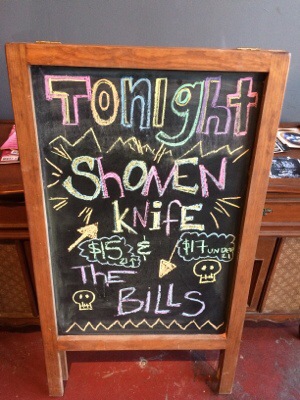 Tonight
Shonen
Knife
$15 & $17 UNDER 21
THE
BILLS